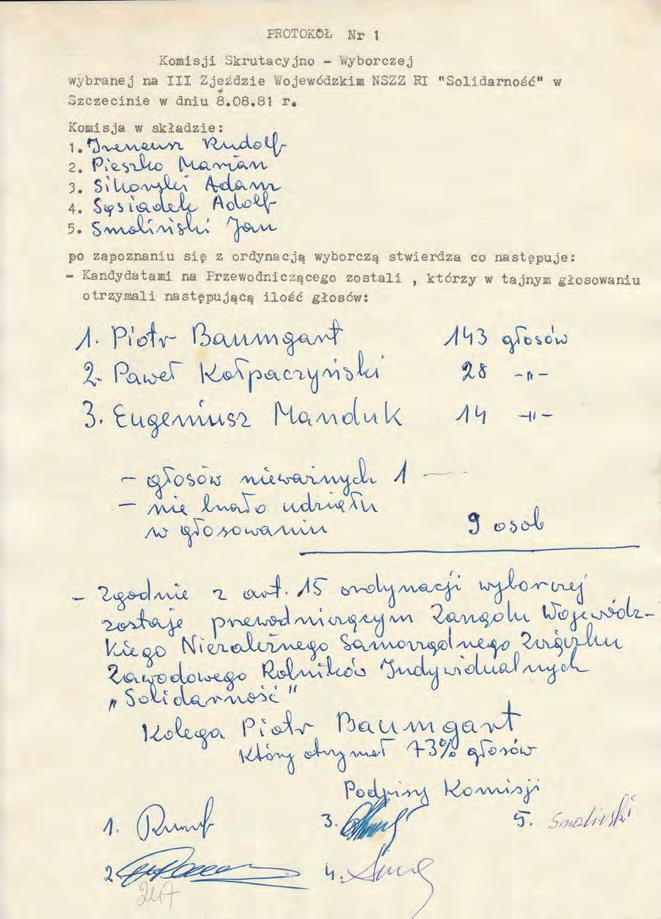 PROTOKÓŁ Nr 1
Komisji Skrutacyjno - Wyborczej
wybranej na III Zjeździe Wojewódzkim NSZZ RI "Solidarność" w
Szczecinie w dniu 8.08.81 r.
Komisja w składzie:
1. Ireneusz Rudolf
2. Pieszko Marian
3. Sikorski Adam
4. Sąsiadek Adolf
5. Smoliński Jan
po zapoznaniu się z ordynacją wyborczą stwierdza co następuje:
- Kandydatami na Przewodniczącego zostali , którzy w tajnym głosowaniu
otrzymali następującą ilość głosów:
1. Piotr Baumgant 143 głosów
2. Paweł Kołpaczyński 28 -„-
3. Eugeniusz Manduk 14 -„-
- głosów nieważnych 1 -
- nie brało udziału
w głosowaniu 9 osób
- Zgodnie z art. 15 ordynacji wyborczej
zostaje przewodniczącym Zarządu Wojewódz-
kiego Niezależnego Samorządnego Związku
Zawodowego Rolników Indywidualnych
„Solidarność"
Kolega Piotr Baumgant
który otrzymał 73% głosów
Podpisy Komisji
1. 3. 5. Smoliński
2. 4.
247